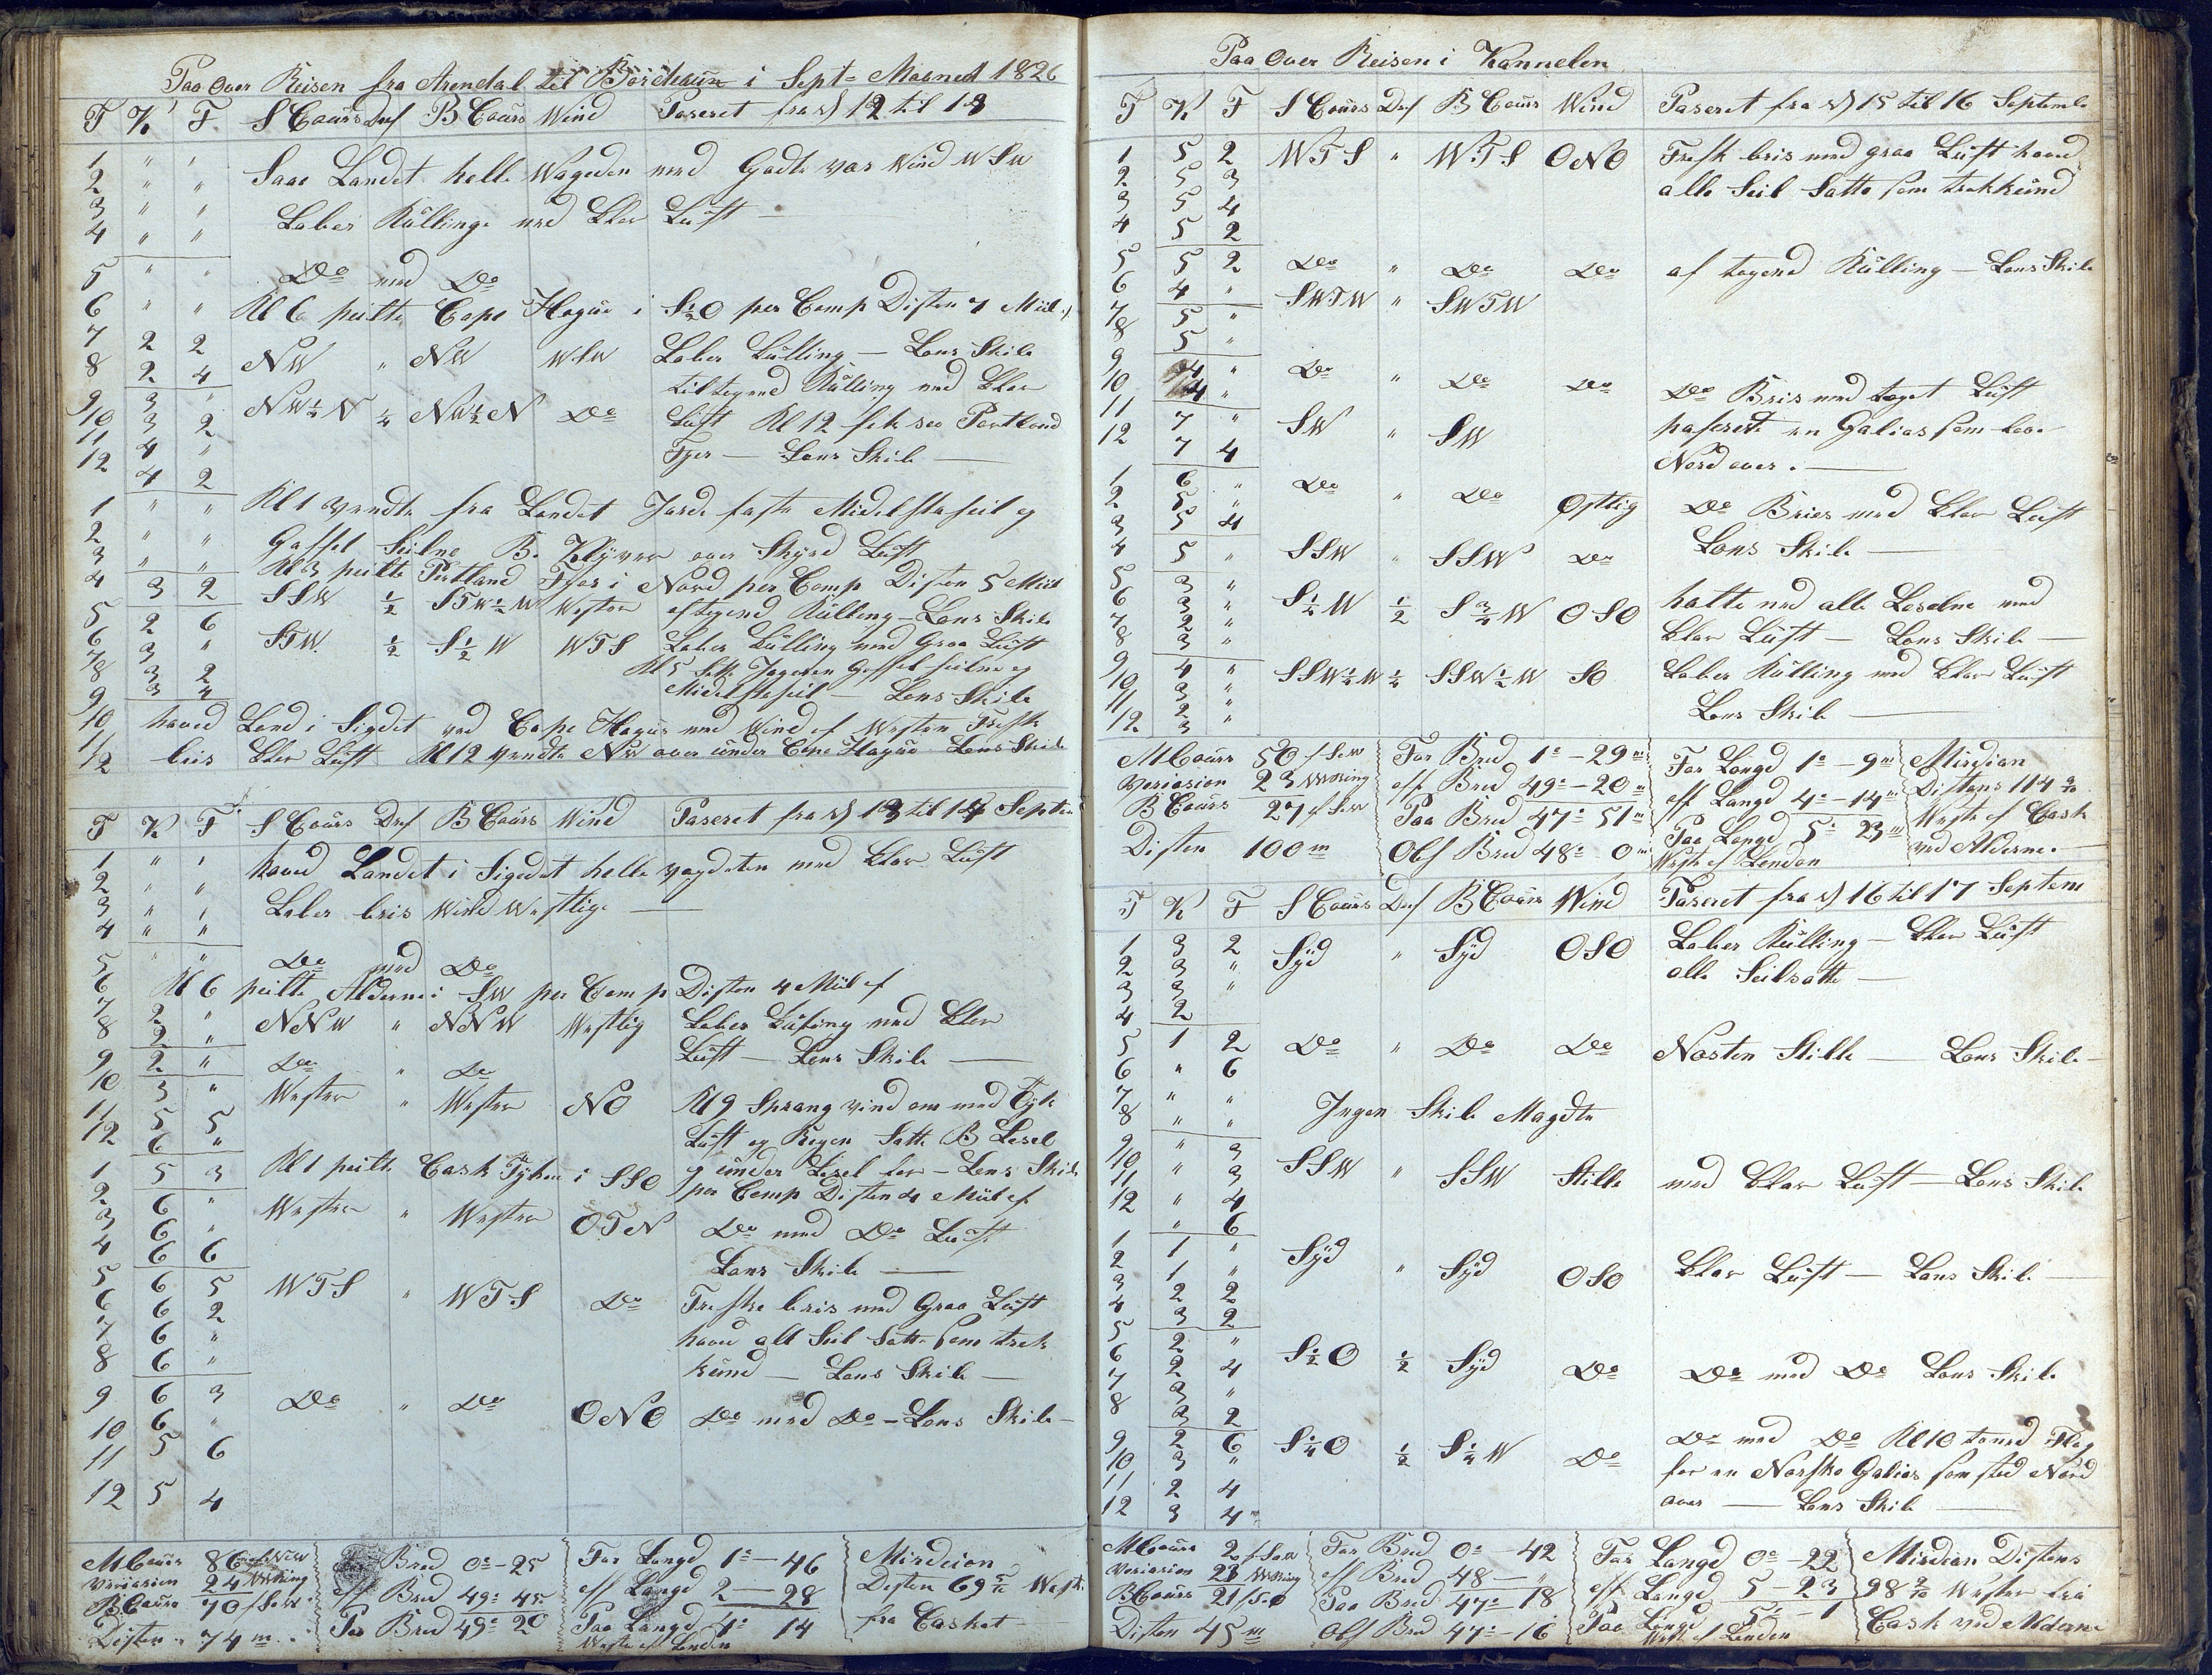 Paa Over Reisen fra Arendal til Bordeaux i Sept= Maaned 1826
T K F S Cours Drf B Cours Wind Paseret fra d 12 til 13
1 " " Saae Landet helle Wageden med Godte var Wind WSW
2 " "
3 " " Laber Kulling med Klar Luft —
4 " "
5 " " Do med Do
6 " " Kl 6 peilte Cape Hague i S½O per Comp Disten 7 Miil
7 2 2 NW " NW WSW Laber Kulling — Lens Skib
8 2 4 tiltagend Kulling med Klar
9 3 " NW½N ¼ NW½N Do Luft Kl 12 fik see Portland
10 3 2 Fyer — Lens Skib —
11 4 "
12 4 2
1 " " Kl 1 vendte fra Landet Jorde faste Midelstaseil og
2 " " Gaffel Seilne B. Klyver over Skyed Luft
3 " " Kl 3 peilte Portland Fyer i Nord per Comp Disten 5 Miil
4 3 2 SSW ½ STW½W Westen aftagend Kulling — Lens Skib
5 2 6 STW ½ S½W WTS Laber Kulling med Graa Luft
6 3 " Kl 5 satte Jageren Gaffel seilne og
7 3 2 Midelstaseil — Lens Skib
8 3 4
9
10 haved Land i Sigdet ved Cape Hague med Wind af Westen Frisk
11
12 bris Klar Luft Kl 12 vendte NW over under Cape Hague Lens Skib
T K F S Cours Drf B Cours Wind Paseret fra d 13 til 14 Septem
1 " " haved Landet i Sigedet helle vagdeten med Klar Luft
2 " "
3 " " Laber bris Wind Westlige —
4 " "
5 " " Do med Do
6 Kl 6 peilte Alderne i SW per Comp Disten 4 Miil af
7 2 " NNW " NNW Westlig Laber Kuling med Klar
8 2 " Luft — Lens Skib —
9 2 " Do " Do
10 3 " Westen " Westen NO Kl 9 Sprang vind om med Tyk
11 5 5 Luft og Regen Satte B Lesel
12 6 "
1 5 3 Kl 1 peilte Cask Fyhen i SSO og under Lesel for — Lens Skib
2 6 " per Comp Disten 4 Miil af
3 6 " Westen " Westen OTN Do med Do Luft
4 6 6 Lens Skib —
5 6 5 WTS " WTS Do Friske bris med Graa Luft
6 6 2 haved all Seil Satte som trek
7 6 " kund — Lens Skib —
8 6 "
9 6 3 Do " Do ONO Do med Do — Lens Skib —
10 6 "
11 5 6
12 5 4
M Cours 86 Bred 0°—25 For Langd 1°—46 Mirdeion
Variasion 24 Wisning aff Bred 49:45 aff Langd 2—28 Disten 69 West
B Cours 70 f S W Paa Bred 49°20 Paa Langd 4° 14 fra Casket
Disten. 74 m. Weste af Lenden
Paa Over Reisen i Kannelen
T K F S Cours Drf B Cours Wind Paseret fra d 15 til 16 Septemb
1 5 2 WTS " WTS ONO Frisk bris med graa Luft haved
2 5 3 alle Seil Satte som trekkund
3 5 4
4 5 2
5 5 2 Do " Do Do af tagend Kulling — Lens Skib
6 4 " SWTW " SWTW
7 5 "
8 5 "
9 4 " Do " Do Do Do Bris med taget Luft
10 4 " paserete en Galias som laae
11 7 " SW " SW Nord over. —
12 7 4
1 6 " Do " Do Ostlig Do Bries med Klar Luft
2 5 " Lens Skib —
3 5 4
4 5 " SSW " SSW Do
5 3 " S¼W ½ S¾W OSO hatte ned alle Leselne med
6 3 " Klar Luft — Lens Skib —
7 2 "
8 3 "
9 4 " SSW½W ½ SSW½W SO Laber Kulling med Klar Luft
10 3 " Lens Skib —
11 2 "
12 3 "
M Cours 50 f S W For Bred 1°—29 m For Langd 1°—9 m Mirdian
Variasion 23 Wisning aff Bred 49°—20 m aff Langd 4°—14 m Distans 114
B Cours 27 f S W Paa Bred 47° 51 m Paa Langd 5° 23 m Weste af Cask
Disten 100 m Obs Bred 48° 0 m Weste af Lenden ved Alderne.
T K F S Cours Drf B Cours Wind Paseret fra d 16 til 17 Septem
1 3 2 Syd " Syd OSO Laber Kulling — Klar Luft
2 3 " alle Seil satte —
3 3 "
4 2
5 1 2 Do " Do Do Nasten Stille — Lens Skib —
6 " 6
7 " " Ingen Skib Magdte
8 " "
9 " 3 SSW " SSW Stille med Klar Luft — Lens Skib
10 " 3
11 " 4
12 " 6
1 1 " Syd " Syd OSO Klar Luft — Lens Skib. —
2 1 "
3 2 2
4 3 2
5 2 " S½O ½ Syd Do Do med Do Lens Skib
6 2 4
7 3 "
8 3 2
9 2 6 S¼O ½ S¼W Do Do med Do Kl 10 toned Flag
10 3 " for en Norske Galias som stod Nord
11 2 4 over — Lens Skib —
12 3 4
M Cours 2 f S W For Bred 0°—42 For Langd 0°—22 Mirdian Distans
Variasion 23 Wisning aff Bred 48—" aff Langd 5—23 98 Westen fra
B Cours 21 f S O Paa Bred 47°—18 Paa Langd 5°—1 Cask ved Alderne
Disten 45 m Obs Bred 47°—16 West af Lenden